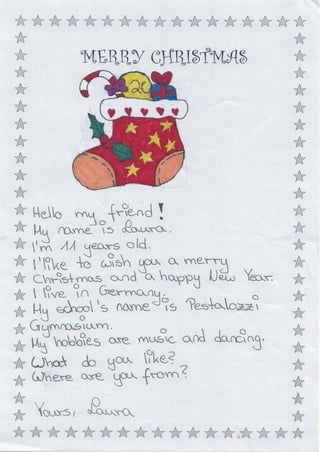 MERRY CHRISTMAS
2€
Hello my friend!
My name is Laura.
I'm 11 years old.
I'like to wish you a merry
Christmas and a happy New Year.
I live in Germany.
My school's name is Pestalozzi
Gymnasium.
My hobbies are music and dancing.
What do you like?
Where are you from?
Yours, Laura